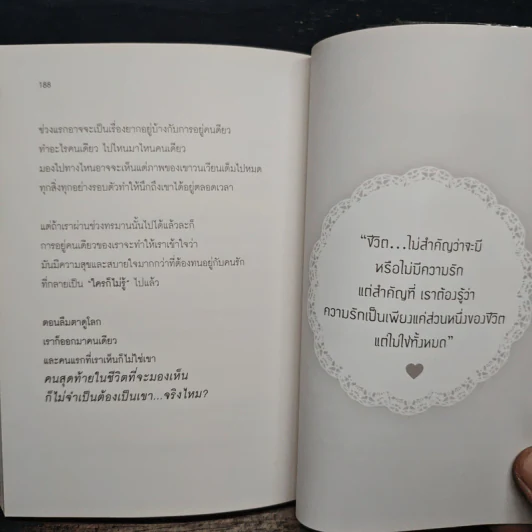 188
ช่วงแรกอาจจะเป็นเรื่องยากอยู่บ้างกับการอยู่คนเดียว
ทำอะไรคนเดียว ไปไหนมาไหนคนเดียว
มองไปทางไหนอาจจะเห็นแต่ภาพของเขาวนเวียนเต็มไปหมด
ทุกสิ่งทุกอย่างรอบตัวทำให้นึกถึงเขาได้อยู่ตลอดเวลา
แต่ถ้าเราผ่านช่วงทรมานนั้นไปได้แล้วละก็
การอยู่คนเดียวของเราจะทำให้เราเข้าใจว่า
มันมีความสุขและสบายใจมากกว่าที่ต้องทนอยู่กับคนรัก
ที่กลายเป็น "ใครก็ไม่รู้" ไปแล้ว
ตอนลืมตาดูโลก
เราก็ออกมาคนเดียว
และคนแรกที่เราเห็นก็ไม่ใช่เขา
คนสุดท้ายในชีวิตที่จะมองเห็น
ก็ไม่จำเป็นต้องเป็นเขา...จริงไหม?
"ชีวิต...ไม่สำคัญว่าจะมี
หรือไม่มีความรัก
แต่สำคัญที่ เราต้องรู้ว่า
ความรักเป็นเพียงแค่ส่วนหนึ่งของชีวิต
แต่ไม่ใช่ทั้งหมด"